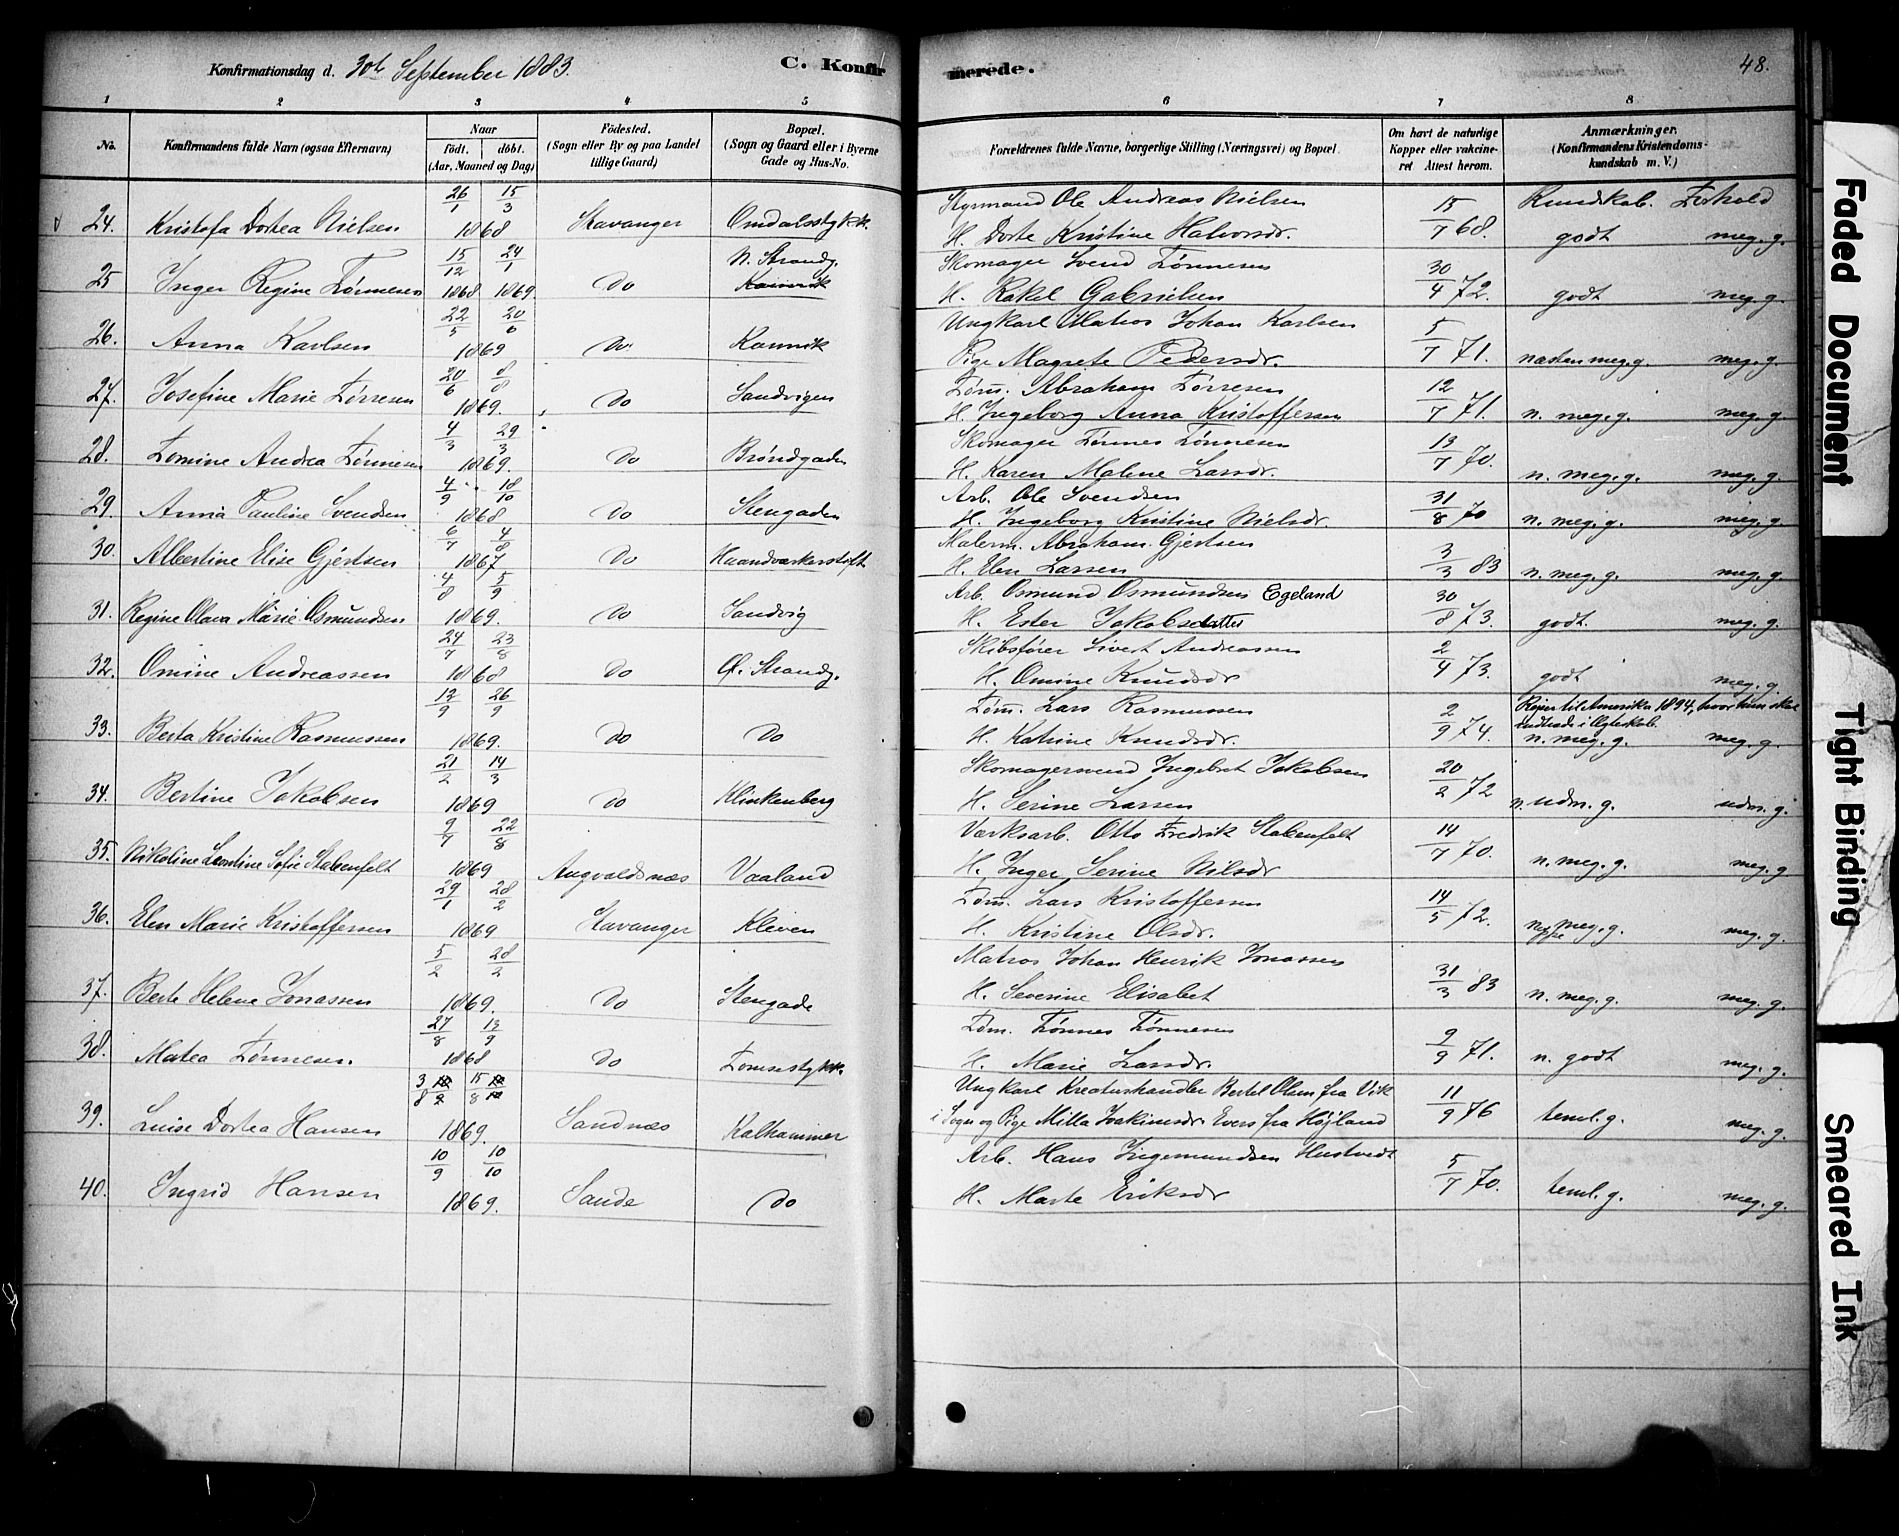 Konfirmationsdag d. 30te September 1883. C. Konfir merede. 48.
1 2 3 4 5 6 7 8
No. Konfirmandens fulde Navn (ogsaa Efternavn) Naar født. døbt. (Aar, Maaned og Dag) Fødested. (Sogn eller By og paa Landet tillige Gaard) Bopæl. (Sogn og Gaard eller i Byerne Gade og Hus-No. Forældrenes fulde Navne, borgerlige Stilling (Næringsvei) og Bopæl. Om havt de naturlige Kopper eller vakcineret Attest herom. Anmærkninger. (Konfirmandens Kristendomskundskab m. V.)
Kundskab. Forhold
24. Kristofa Dortea Nielsen 26/1 15/3 1868 Stavanger Omdalsstykk. Styrmand Ole Andreas Nielsen
H. Dorte Kristine Halvorsdr. 15/7 68. godt meg. g.
25 Inger Regine Tönnesen 15/12 1868 24/1 1869. Do N. Strandg. Skomager Svend Tönnesen
H. Rakel Gabrielsen 30/4 72. godt meg. g.
26. Anna Karlsen 22/5 20/6 1869 Do. Kannik Ungkarl Matros Johan Karlsen
Pige Magrete Pedersdr. 5/7 71. næsten meg. g. meg. g.
27. Josefine Marie Törresen 20/6 8/8 1869. Do Sandvigen Töm. Abraham Törresen
H. Ingeborg Anna Kristoffersen 12/7 71. n. meg. g. meg. g.
28. Tomine Andrea Tönnesen 4/3 29/3 1869. Do Bröndgaden Skomager Tönnes Tönnesen
H. Karen Malene Larsdr. 13/7 70. n. meg. g. meg. g.
29. Anna Pauline Svendsen 4/9 18/10 1868 Do Stengaden Arb. Ole Svendsen
H. Ingeborg Kristine Nielsdr. 31/8 70 n. meg. g. meg. g.
30. Albertine Elise Gjertsen 6/7 4/8 1867 Do Haandværkerstift Malerm. Abraham Gjertsen
H. Elen Larsen 3/3 83 n. meg. g. meg. g.
31. Regine Olava Marie Osmundsen 4/8 5/9 1869. Do Sandvig Arb. Osmund Osmundsen Egeland
H. Ester Jakobsdatter 30/8 73. godt. meg. g.
32. Omine Andreassen 24/7 23/8 1868 Do Ö. Strandg. Skibsförer Sivert Andreassen
H. Omine Knudsdr 2/4 73. godt meg. g.
33. Berta Kristine Rasmussen 12/9 26/9 1869. Do Do Töm. Lars Rasmussen
H. Katrine Knudsdr. 2/9 74. Reiser til Amerika 1894, hvor hun skal indtræde i Ægteskab. n. meg. g. meg. g.
34. Bertine Jakobsen 21/2 14/3 1869 Do Klinkenberg Skomagersvend Ingebret Jakobsen
H. Serine Larsen 20/2 72 n. udm. g. udm. g.
35. Nikoline Leontine Sofie Stabenfelt 9/7 22/8 1869 Augvaldsnæs Vaaland Værksarb. Otto Fredrik Stabenfelt
H. Inger Serine Nilsdr 14/7 70. n. meg. g. meg. g
36. Elen Marie Kristoffersen 29/1 28/2 1869 Stavanger Kleven Töm. Lars Kristoffersen
H. Kristine Olsdr. 14/5 72. neppe meg. g. meg. g.
37. Berte Helene Jonassen 5/2 28/2 1869. Do Stengade Matros Johan Henrik Jonassen
H. Severine Elisabet 31/3 83 n. meg. g. meg. g.
38. Matea Tönnesen. 27/8 13/9 1868 Do Tomsestykk. Töm. Tönnes Tönnesen
H. Marie Larsdr. 9/9 71. n. godt meg. g.
39. Luise Dortea Hansen 3/8 15/8 1869. Sandnæs Kalhammer Ungkarl Kreaturhandler Bertel Olsen fra Vik
i Sogn og Pige Milla Joakimsdr. Evers fra Højland 11/9 76 teml. g. meg. g.
40. Ingrid Hansen 10/9 10/10 1869. Sande Do Arb. Hans Ingemundsen Hustvedt
H. Marte Eriksdr 5/7 70. teml. g. meg. g.
Faded Document
Tight Binding
Smeared Ink